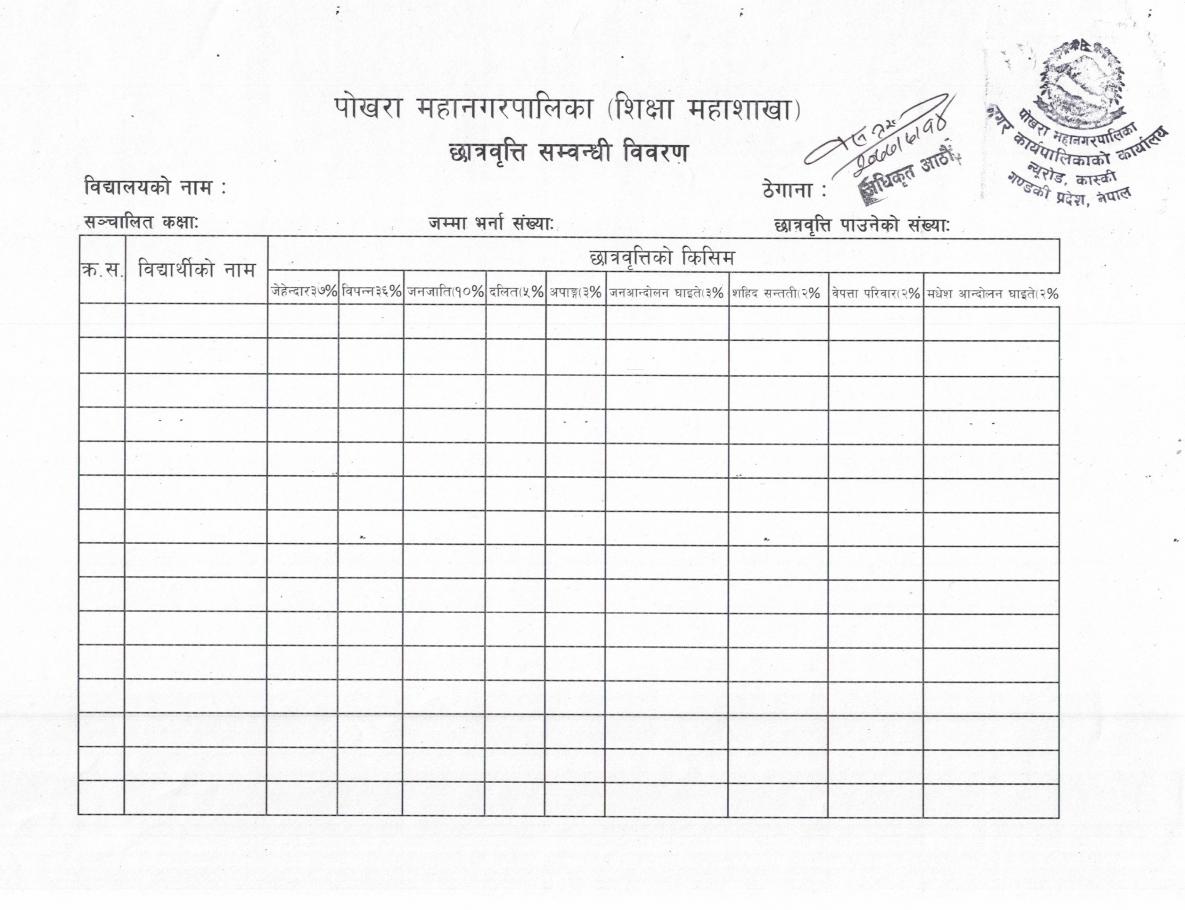 पोखरा महानगरपालिका (शिक्षा महाशाखा)
छात्रवृत्ति सम्वन्धी विवरण
अधिकृत आठौं
पोखरा महानगरपालिका
नगर कार्यपालिकाको कार्यालय
न्यूरोड, कास्की
गण्डकी प्रदेश, नेपाल
विद्यालयको नाम :
ठेगाना :
सञ्चालित कक्षाः
जम्मा भर्ना संख्याः
छात्रवृत्ति पाउनेको संख्याः
क्र.स.
विद्यार्थीको नाम
छात्रवृत्तिको किसिम
जेहेन्दार३७%
विपन्न३६%
जनजाति(१०%
दलित(५%
अपाङ्ग(३%
जनआन्दोलन घाइते(३%
शहिद सन्तती(२%
वेपत्ता परिवार(२%
मधेश आन्दोलन घाइते(२%